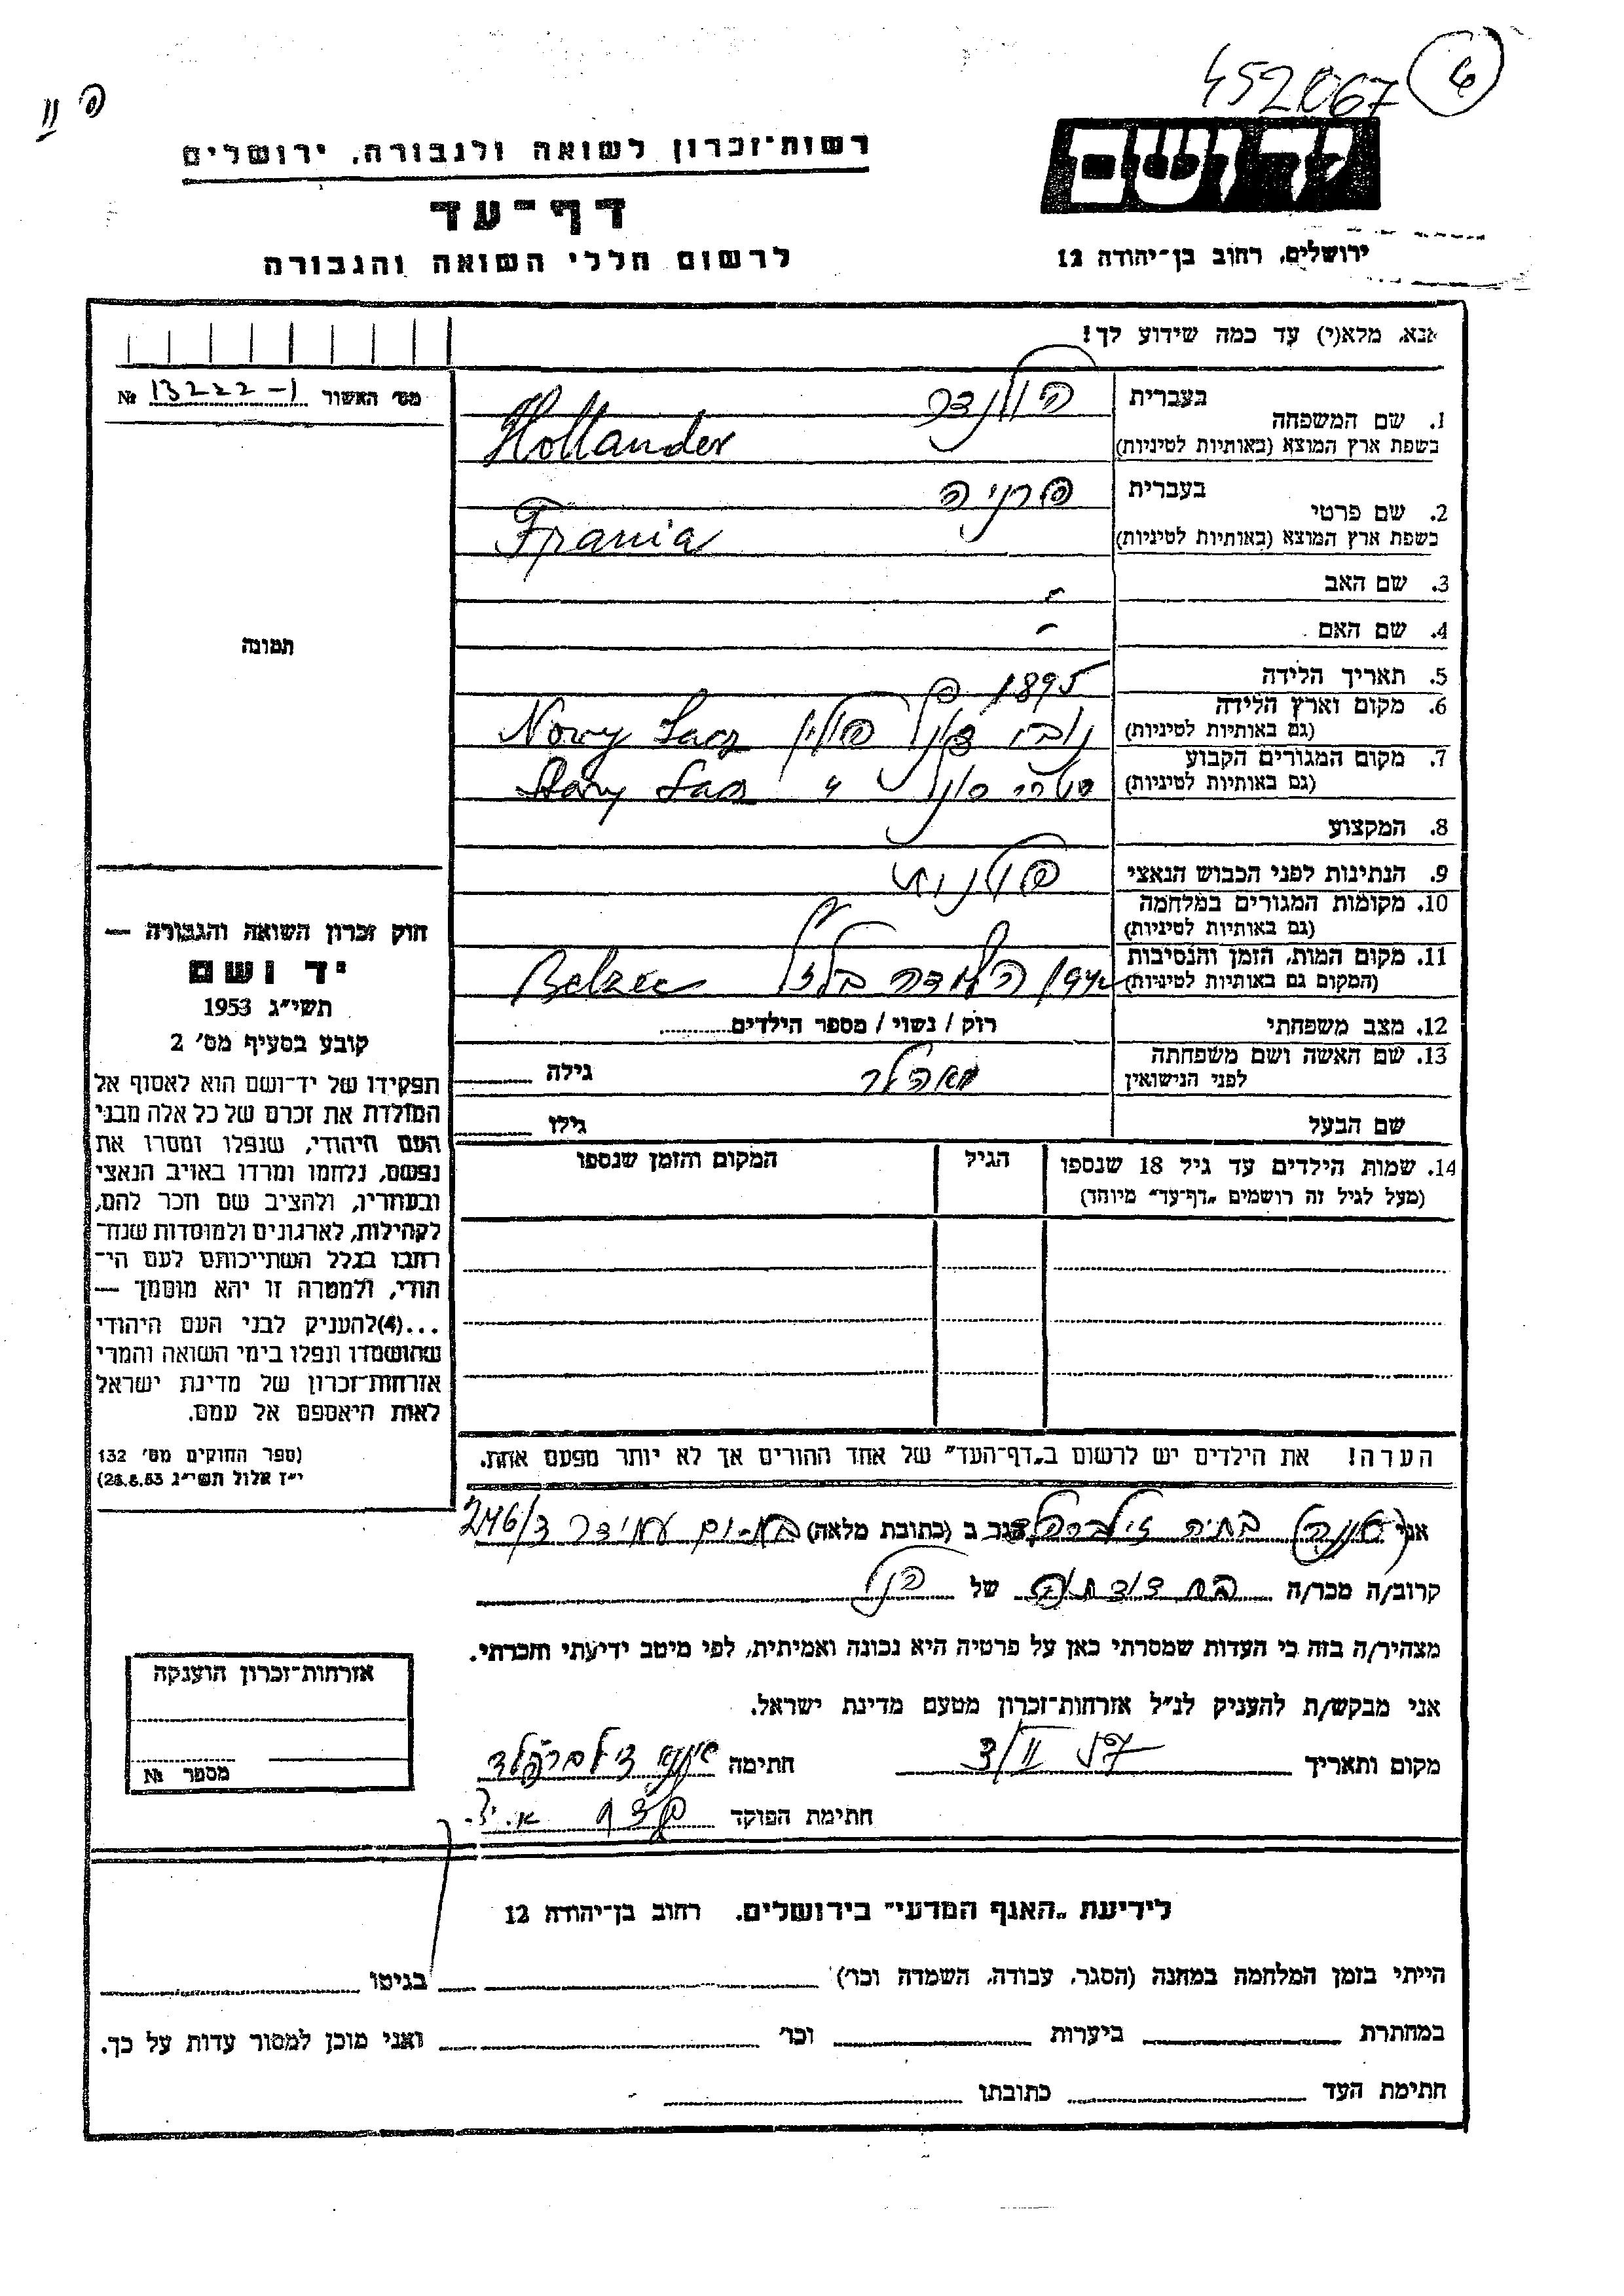 452067 4
פ II
יד ושם
רשות־זכרון לשואה ולגבורה, ירושלים
דף־עד
לרשום חללי השואה והגבורה
ירושלים, רחוב בן־יהודה 12
אנא, מלא(י) עד כמה שידוע לך!
מס' האשור 13222-1 №
תמונה
1. שם המשפחה
בעברית הולנדר
בשפת ארץ המוצא (באותיות לטיניות) Hollander
2. שם פרטי
בעברית פרניה
בשפת ארץ המוצא (באותיות לטיניות) Frania
3. שם האב -
4. שם האם -
5. תאריך הלידה 1895
6. מקום וארץ הלידה
(גם באותיות לטיניות) נובי סונץ פולין Nowy Sacz
7. מקום המגורים הקבוע
(גם באותיות לטיניות) סטרי סונץ " Stary Sacz
8. המקצוע
9. הנתינות לפני הכבוש הנאצי פולנית
10. מקומות המגורים במלחמה
(גם באותיות לטיניות)
11. מקום המות, הזמן והנסיבות
(המקום גם באותיות לטיניות) 1942 Belzec
12. מצב משפחתי רוק / נשוי / מספר הילדים
13. שם האשה ושם משפחתה
לפני הנישואין גילה
שם הבעל גילו
14. שמות הילדים עד גיל 18 שנספו
(מעל לגיל זה רושמים „דף־עד" מיוחד)
הגיל
המקום והזמן שנספו
חוק זכרון השואה והגבורה —
יד ושם
תשי"ג 1953
קובע בסעיף מס' 2
תפקידו של יד־ושם הוא לאסוף אל
המולדת את זכרם של כל אלה מבני
העם היהודי, שנפלו ומסרו את
נפשם, נלחמו ומרדו באויב הנאצי
ובעוזריו, ולהציב שם וזכר להם,
לקהילות, לארגונים ולמוסדות שנח־
רחבו בגלל השתייכותם לעם הי־
הודי, ולמטרה זו יהא מוסמך —
...(4)להעניק לבני העם היהודי
שהושמדו ונפלו בימי השואה והמרי
אזרחות־זכרון של מדינת ישראל
לאות היאספם אל עמם.
(ספר החוקים מס' 132
י"ז אלול תשי"ג 28.8.53)
הערה! את הילדים יש לרשום ב„דף־העד" של אחד ההורים אך לא יותר מפעם אחת.
אני בתיה זילברפלד הגר ב (כתובת מלאה) בת-ים עמידר 246/ד
קרוב/ה מכר/ה בת דודתה של הנ"ל
מצהיר/ה בזה כי העדות שמסרתי כאן על פרטיה היא נכונה ואמיתית, לפי מיטב ידיעתי והכרתי.
אני מבקש/ת להעניק לנ"ל אזרחות־זכרון מטעם מדינת ישראל.
מקום ותאריך 3/II 57 חתימה זילברפלד
חתימת הפוקד
אזרחות־זכרון הוענקה
מספר №
לידיעת „האגף המדעי" בירושלים, רחוב בן־יהודה 12
הייתי בזמן המלחמה במחנה (הסגר, עבודה, השמדה וכו') בגיטו
במחתרת ביערות וכו' ואני מוכן למסור עדות על כך.
חתימת העד כתובתו